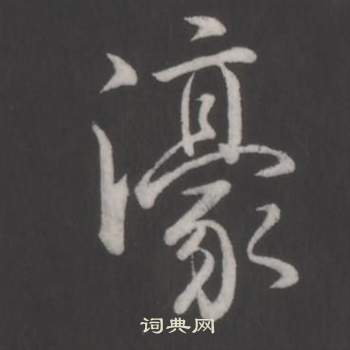 濠
词典网